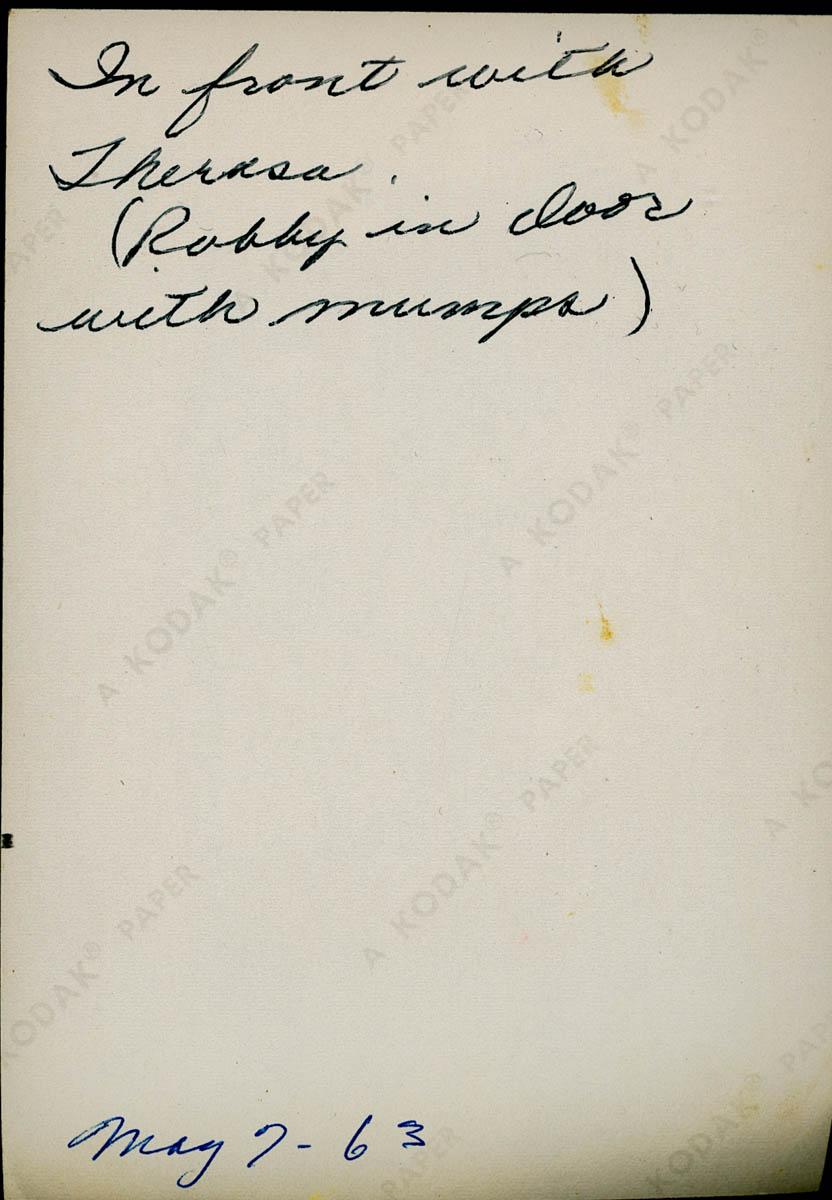 In front with
Theresa.
(Robby in door
with mumps)
A KODAK® PAPER
A KODAK® PAPER
A KODAK® PAPER
A KODAK® PAPER
May 7-63